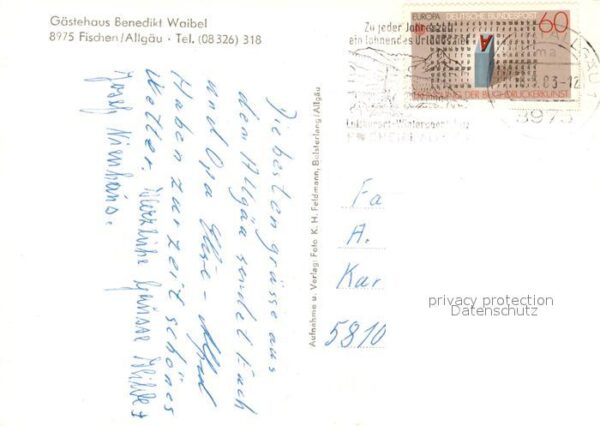 Gästehaus Benedikt Waibel
8975 Fischen/Allgäu · Tel. (08326) 318
Zu jeder Jahreszeit
ein lohnendes Urlaubsziel
EUROPA DEUTSCHE BUNDESPOST 60
DER BUCHDRUCKERKUNST
8975
Die besten grüsse aus
dem Allgäu sendet Euch
und Opa Elise - Alfred
Haben zur zeit schönes
Wetter. Herzliche Grüsse Hilde +
Josef Nienhaus.
Aufnahme u. Verlag: Foto K. H. Feldmann, Bolsterlang/Allgäu
Fa
A.
Kar
5810
privacy protection
Datenschutz